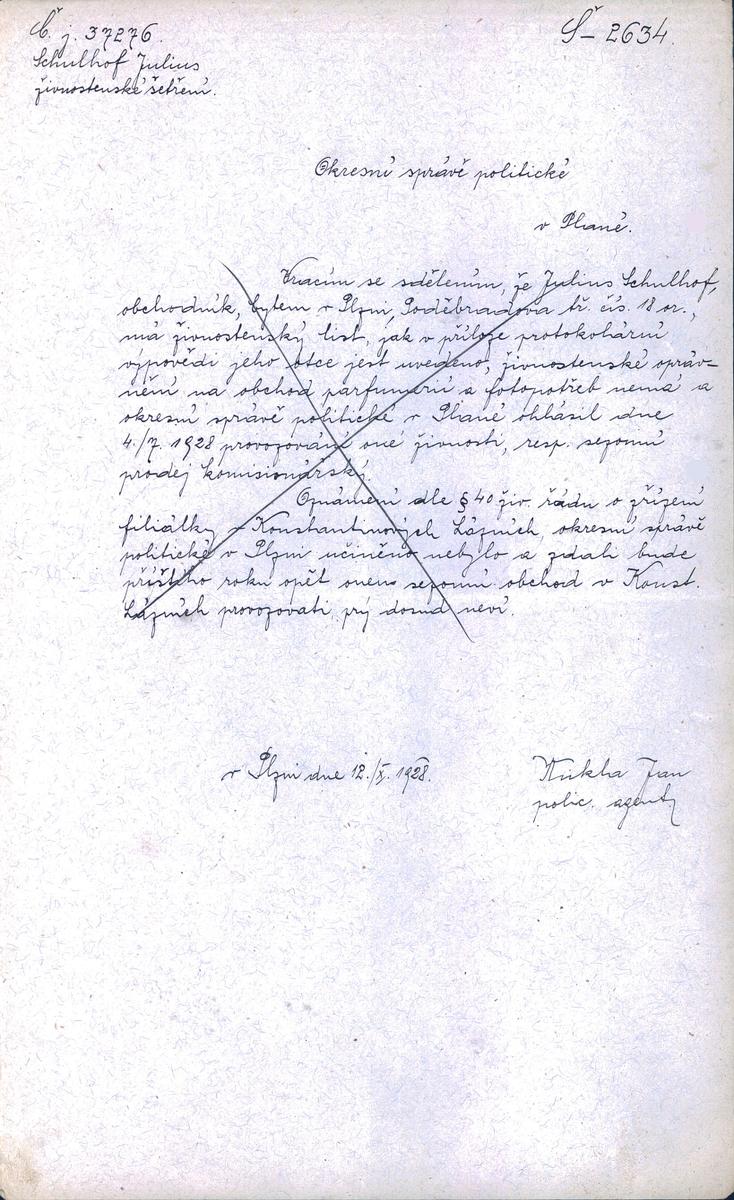 Č. j. 37276.
Š-2634.
Schulhof Julius
živnostenské šetření.
Okresní správě politické
v Plané.
Vracím se sdělením, že Julius Schulhof,
obchodník, bytem v Plzni, Poděbradova tř. čís. 18 or.,
má živnostenský list, jak v příloze protokolární
výpovědi jeho otce jest uvedeno, živnostenské opráv-
nění na obchod parfumerií a fotopotřeb nemá a
okresní správě politické v Plané ohlásil dne
4./7. 1928 provozování oné živnosti, resp. sezonní
prodej komisionářský.
Oznámení dle § 40 živ. řádu o zřízení
filiálky v Konstantinových Lázních, okresní správě
politické v Plzni učiněno nebylo a zdali bude
příštího roku opět onen sezonní obchod v Konst.
Lázních provozovati, prý dosud neví.
v Plzni dne 12./X. 1928.
Jan
polic. agent